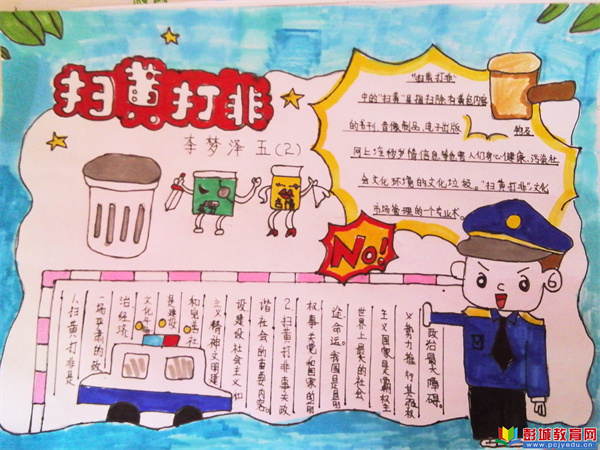 扫黄打非
李梦泽 五(2)
"扫黄打非"
中的"扫黄"是指扫除有黄色内容
的书刊、音像制品、电子出版 物及
网上淫秽色情信息等危害人们身心健康、污染社
会文化环境的文化垃圾。"扫黄打非"文化
市场管理的一个专业术。
No!
1.扫黄打非是
一场严肃的政
治经济
文化
是建设
主义精神文明建
设建设社会主义和
谐社会的重要内容。
2.扫黄打非事关政
权事关党和国家的前
途命运。我国是目前
世界上最大的社会
主义国家是霸权主
义势力推行其强权
政治最大障碍。
彭城教育网
www.pcjyedu.cn